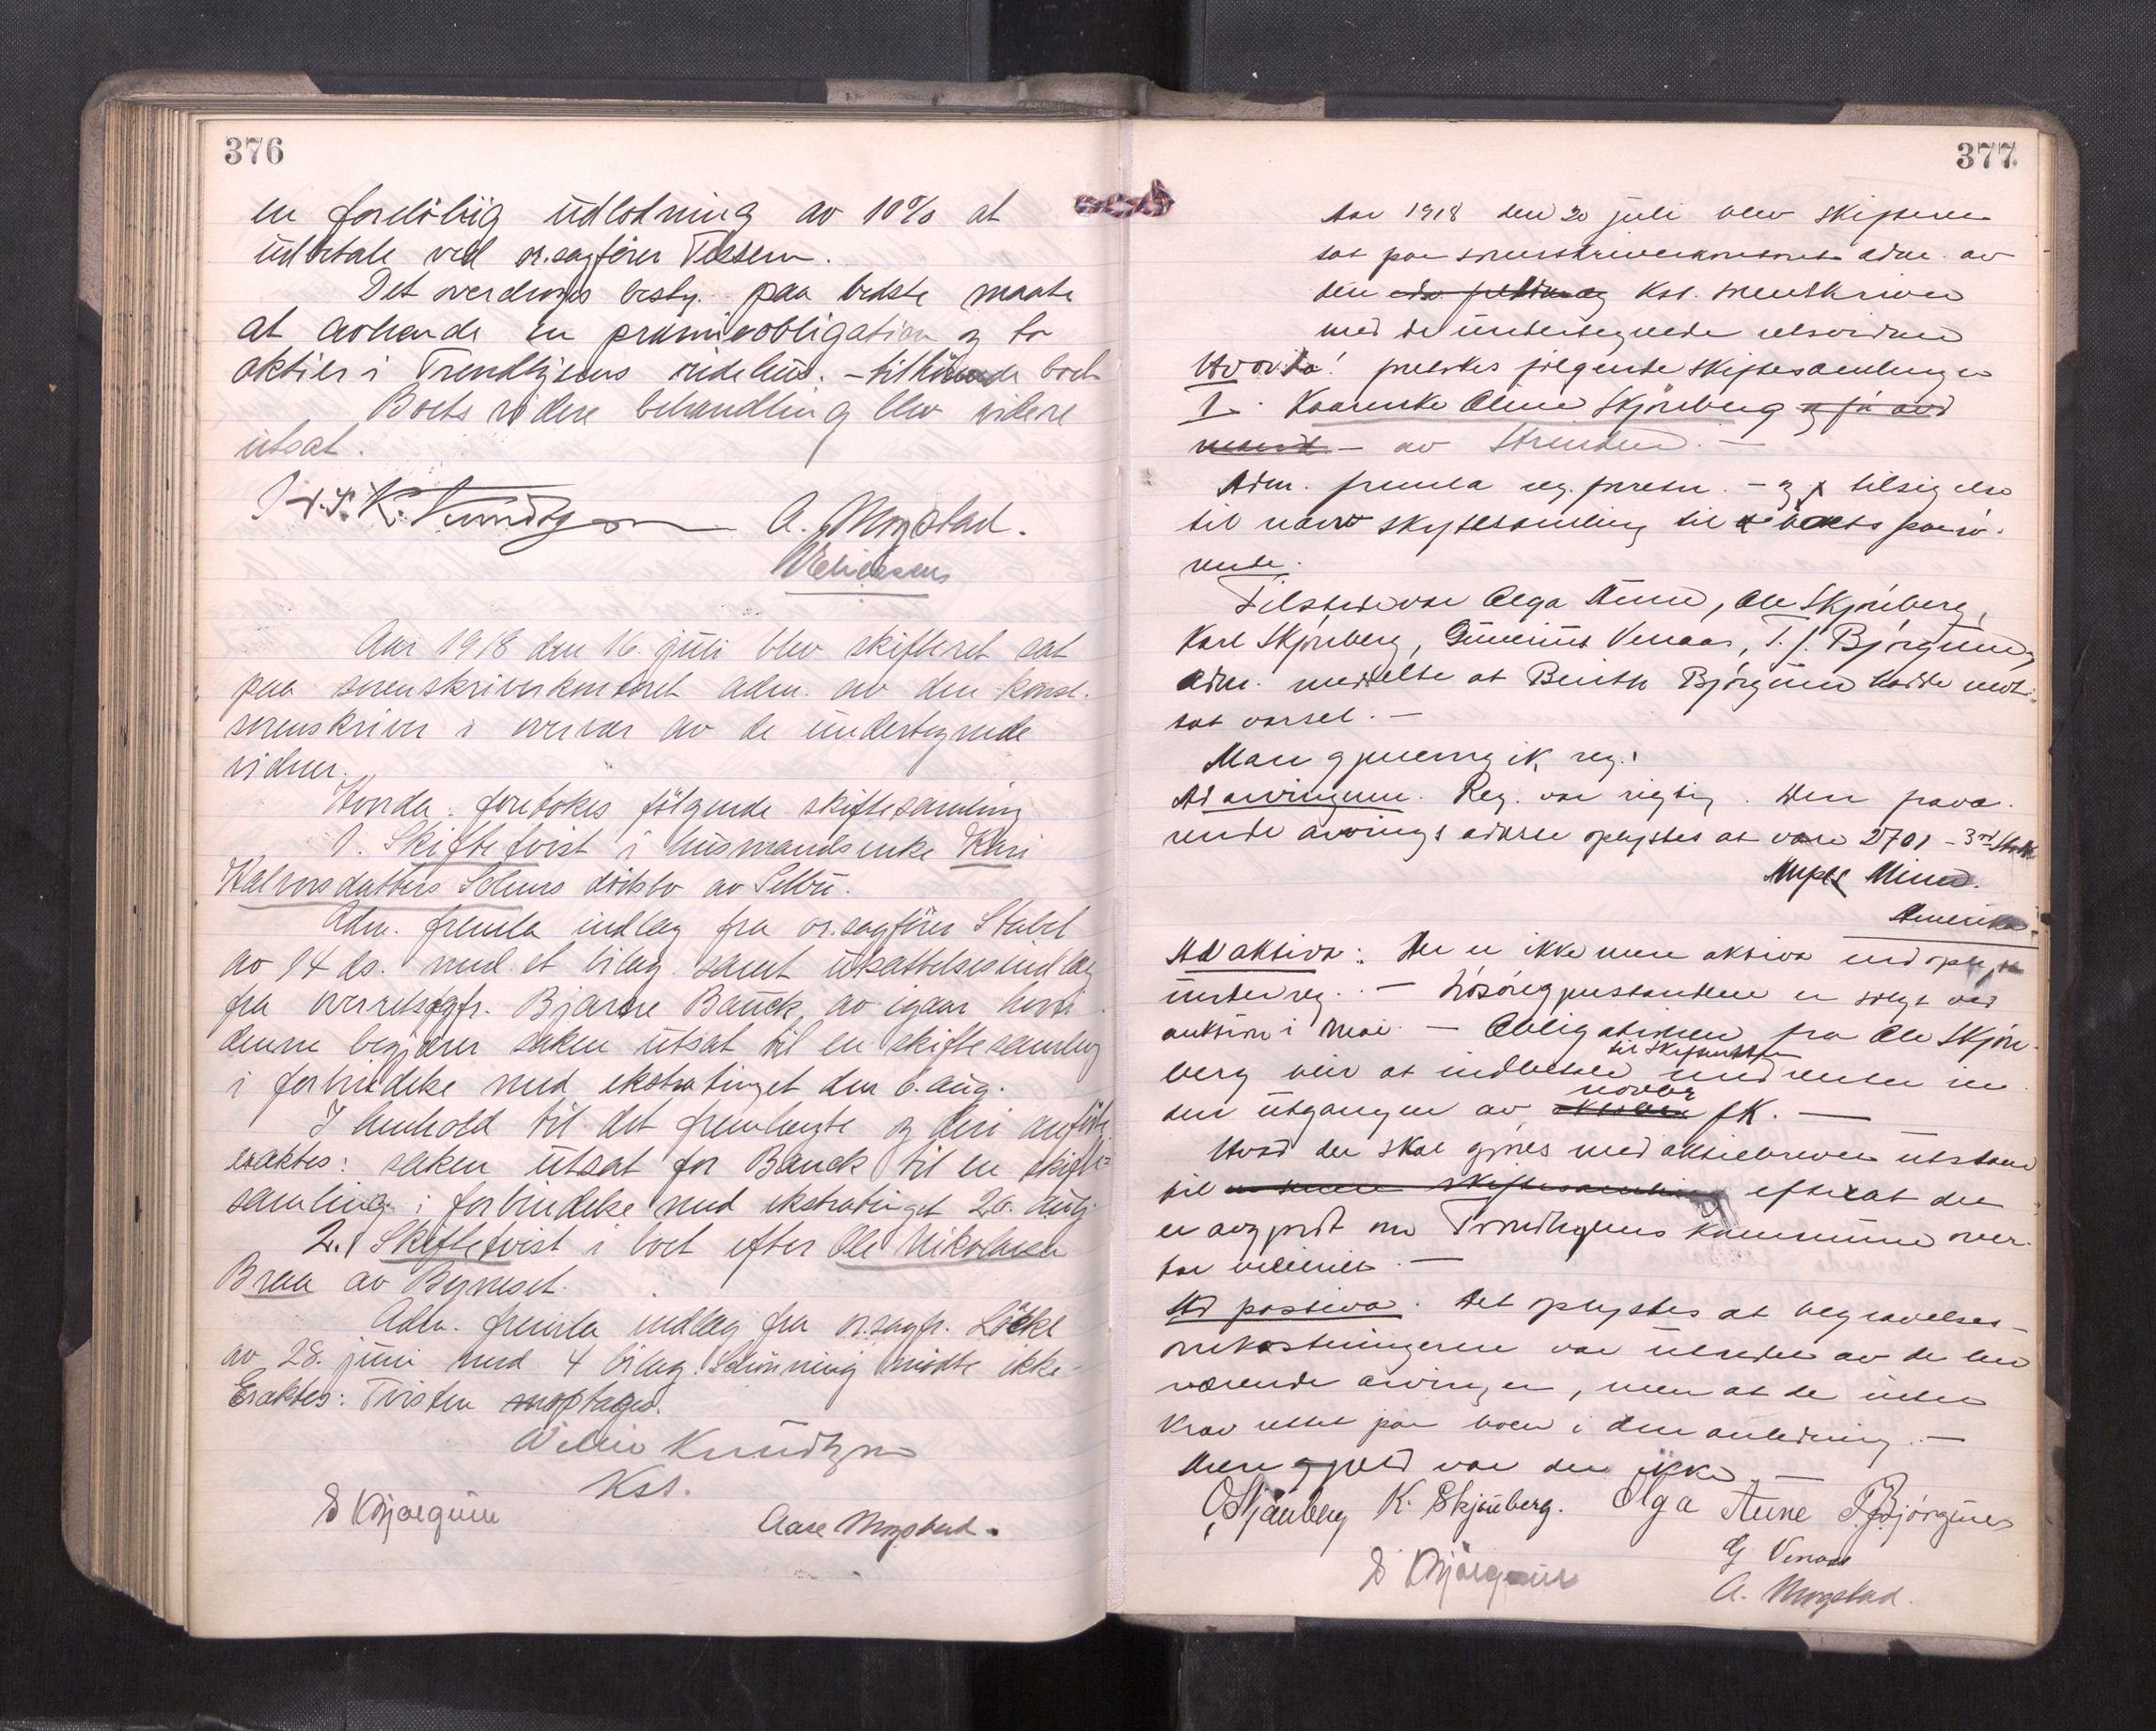 376
en foreløbig udlodning av 10% at
udbetale ved or.sagfører Tessem.
Det overdroges besty. paa bedste maate
at avhænde en præmieobligation og to
aktier i Trondhjems
Boets videre behandling blev videre
utsat.
A. Mogstad.
Aar 1918 den 16. juli blev skifteret sat
paa sorenskriverkontoret adm. av den konst.
sorenskriver i overvær av de undertegnede
vidner.
Hvorda: foretokes følgende skiftesamling
1. Skiftetvist i husmandsenke Kari
Halvorsdatters Solems dødsbo av Selbu.
Adm. fremla indlæg fra or.sagfører Stabel
av 14 ds. med et bilag samt utsættelsesindlæg
fra overretssagfr. Bjarne Bauck av igaar hvori
denne begjærer saken utsat til en skiftesamling
i forbindelse med ekstratinget den 6. aug.
I henhold til det fremlagte og deri anførte
eraktes: saken utsat for Bauck til en skifte=
samling i forbindelse med ekstratinget
2. Skiftetvist i boet efter Ole Nikolaisen
Braa av Byneset.
Adm. fremla indlæg fra or.sagfr. Løcke
av 28. juni med 4 bilag. møtte ikke.
Eraktes: Tvisten optages.
Knudtzon
Kst.
E Bjørgum
Aase Mogstad.
377
Aar 1918 den 20 juli blev skifteret
sat paa sorenskriverkontoret adm. av
den kst. sorenskriver
med de undertegnede retsvidner
Hvorda: foretokes følgende skiftesamlinger
1. Kaarenke Oline Skjønberg og
av Strinden. –
Adm. fremla reg. forretn. – og tilsigelse
til skiftesamling til boets paarø-
rende.
Tilstede var Olga Aune, Ole Skjønberg,
Karl Skjønberg, Gunerius Venaas, T. J. Bjørgum,
Adm. meddelte at Bjørgum hadde mot-
tat varsel. –
Man gjennemgik reg.:
Ad arvingerne. Reg. var rigtig. Den fravæ-
rende arvings adresse oplystes at være 2701 – 3rd
Mpls Minn.
Amerika.
Ad aktiva: Der er ikke mere aktiva end oplyst
under reg. – Løsøregjenstandene er solgt ved
auktion i mai. – Obligationen fra Ole Skjøn-
berg blir at indbetale til skifteretten med renter in-
den utgangen av novbr. –
Hvad der skal gjøres med aktiebreven utstaar
til efterat det
er avgjort om Trondhjems kommune over-
tar
Ad passiva. Det oplystes at begravelses-
omkostningerne var utredet av de her
værende arvinger, men at de inten
krav retter paa boet i den anledning. –
Mere gjæld var der ikke. –
O Skjønberg K. Skjønberg. Olga Aune T. J. Bjørgum
G Venaas
E Bjørgum
A. Mogstad.